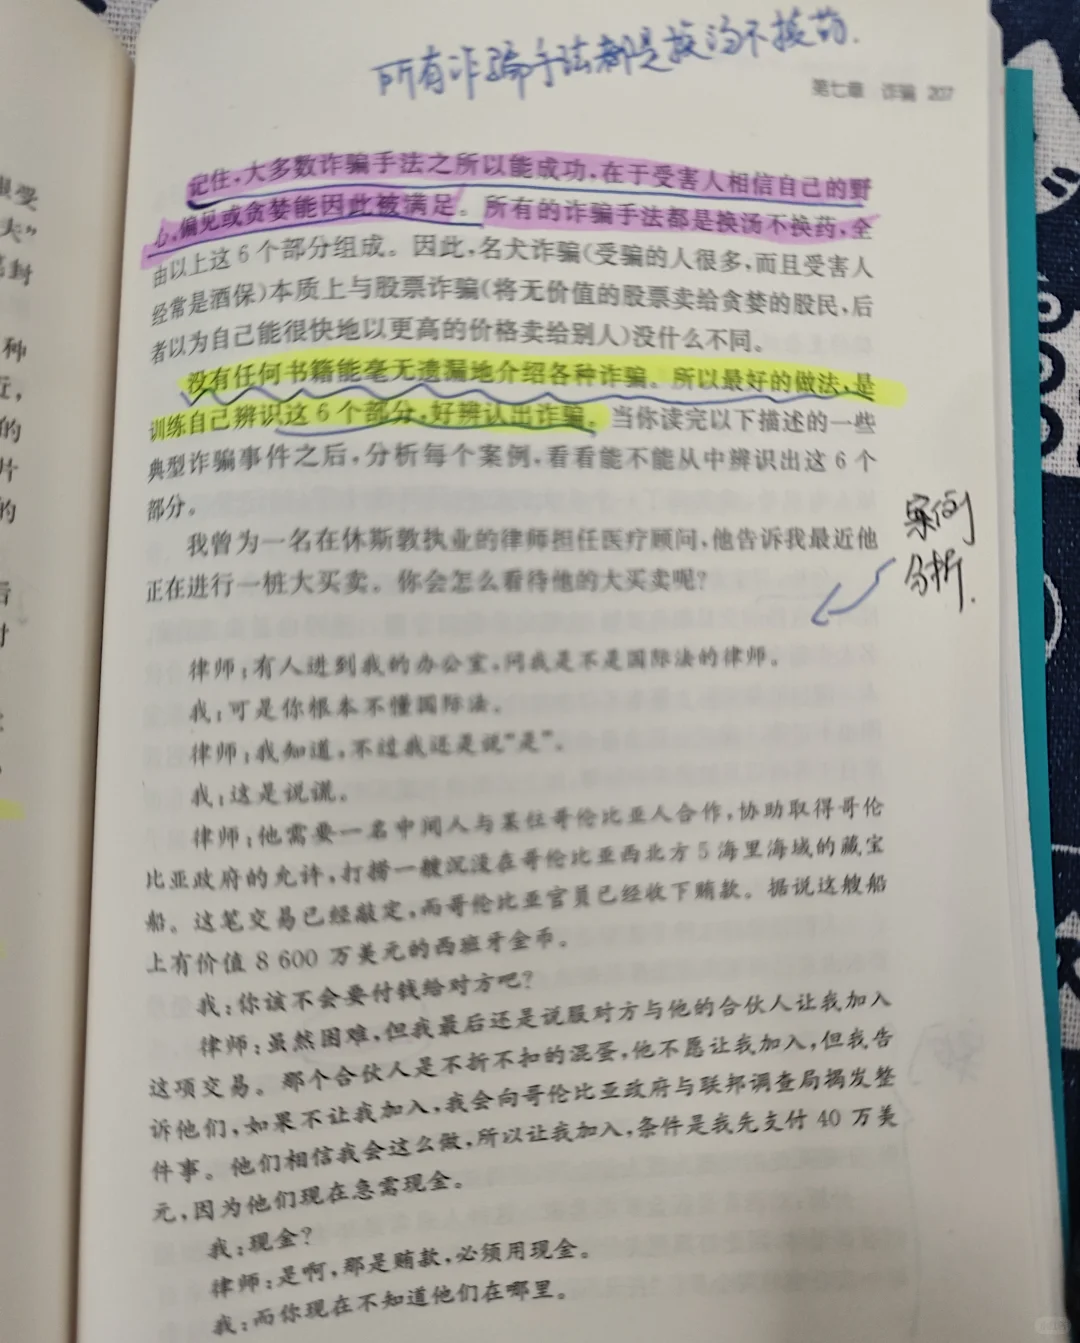 所有诈骗手法都是换汤不换药.
第七章 诈骗 207
记住,大多数诈骗手法之所以能成功,在于受害人相信自己的野
心、偏见或贪婪能因此被满足。所有的诈骗手法都是换汤不换药,全
由以上这6个部分组成。因此,名犬诈骗(受骗的人很多,而且受害人
经常是酒保)本质上与股票诈骗(将无价值的股票卖给贪婪的股民,后
者以为自己能很快地以更高的价格卖给别人)没什么不同。
没有任何书籍能毫无遗漏地介绍各种诈骗。所以最好的做法,是
训练自己辨识这6个部分,好辨认出诈骗。当你读完以下描述的一些
典型诈骗事件之后,分析每个案例,看看能不能从中辨识出这6个
部分。
我曾为一名在休斯敦执业的律师担任医疗顾问,他告诉我最近他
正在进行一桩大买卖。你会怎么看待他的大买卖呢?
案例
分析.
律师:有人进到我的办公室,问我是不是国际法的律师。
我:可是你根本不懂国际法。
律师:我知道,不过我还是说“是”。
我:这是说谎。
律师:他需要一名中间人与某位哥伦比亚人合作,协助取得哥伦
比亚政府的允许,打捞一艘沉没在哥伦比亚西北方5海里海域的藏宝
船。这笔交易已经敲定,而哥伦比亚官员已经收下贿款。据说这艘船
上有价值8 600万美元的西班牙金币。
我:你该不会要付钱给对方吧?
律师:虽然困难,但我最后还是说服对方与他的合伙人让我加入
这项交易。那个合伙人是不折不扣的混蛋,他不愿让我加入,但我告
诉他们,如果不让我加入,我会向哥伦比亚政府与联邦调查局揭发整
件事。他们相信我会这么做,所以让我加入,条件是我先支付40万美
元,因为他们现在急需现金。
我:现金?
律师:是啊,那是贿款,必须用现金。
我:而你现在不知道他们在哪里。